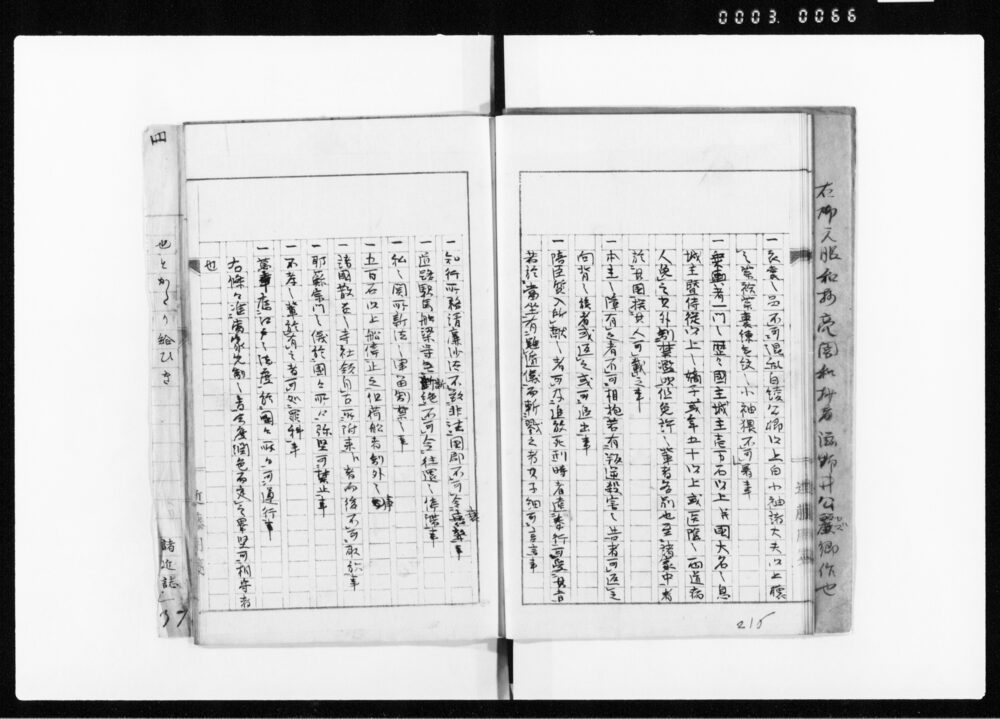 0003.0066
右御元服和抄亮闇和抄者滋野井公麗卿作也
一衣裳之品不可混乱白綾公卿以上白小袖諸大夫以上聴
之紫袷紫裏練無紋之小袖猥不可着事
一乗輿者一門之歴々国主城主壱万石以上并国大名之息
城主曁侍従以上之嫡子或年五十以上或医陰之両道病
人免之其外制禁濫吹但免許之輩者各別也至諸家中者
於其国撰其人可載之事
一本主之障有之者不可相抱若有叛逆殺害之告者可返之
向背之族者或返之或可追出事
一陪臣質人所献之者可及追放死刑時者
若於当座有難遁儀而斬戮之者其子細可言上事
一知行所務清廉沙汰不致非法国郡不可令衰弊事
一道路駅馬船梁等無断絶不可令往還之停滞事
一私之関所新法之津留制禁之事
一五百石以上船停止之但荷船者制外之事
一諸国散在之寺社領自古所附来者向後不可取放事
一耶蘇宗門之儀於国々所々弥堅可禁止事
一不孝之輩於有之者可処罪科事
一万事応江戸之法度於国々所々可遵行事
右條々准当家先制之旨今度潤色而定之畢堅可相守者
也
215
四
也とかたり給ひき
諸近誌
37